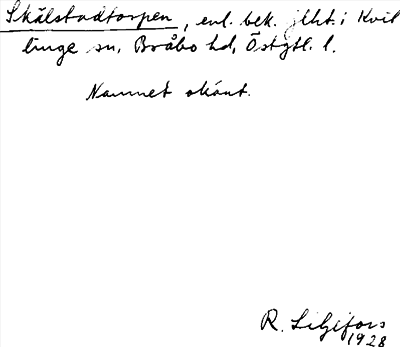 Skälstadtorpen, enl. bek. jlht. i Kvil
linge sn, Bråbo hd, Östgtl. l.
Namnet okänt.
R. Liljefors
1928